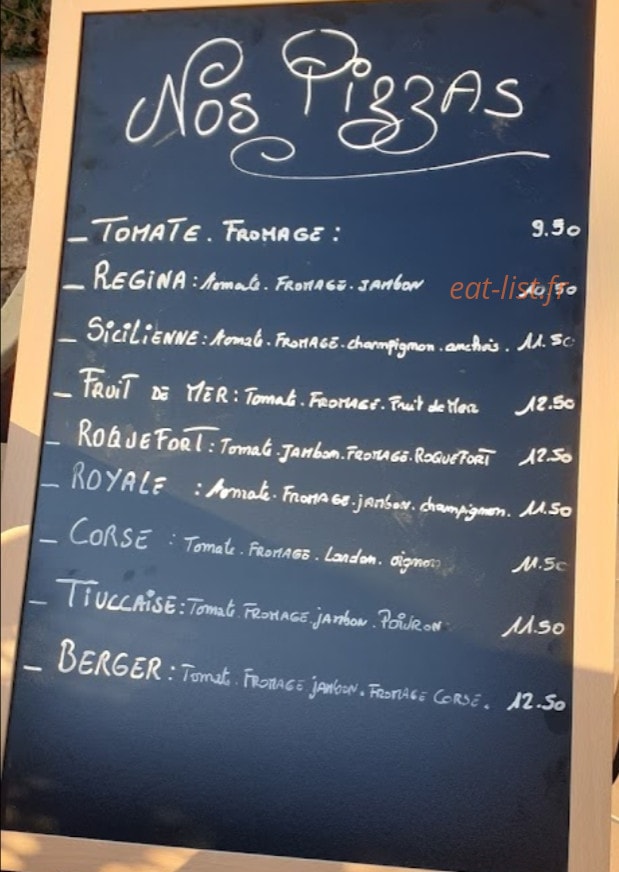 Nos Pizzas
_ TOMATE. FROMAGE : 9.50
_ REGINA : tomate. FROMAGE. JAMBON 10.50
eat-list.fr
_ SICILIENNE : tomate. FROMAGE. champignon. anchois. 11.50
_ FRUIT DE MER : Tomate. FROMAGE. Fruit de Mer 12.50
_ ROQUEFORT : Tomate. JAMBON. FROMAGE. ROQUEFORT 12.50
_ ROYALE : tomate. FROMAGE. jambon. champignon. 11.50
_ CORSE : Tomate. FROMAGE. Lardon. oignon 11.50
_ TIUCCAISE : Tomate. FROMAGE jambon. POIVRON 11.50
_ BERGER : Tomate. FROMAGE jambon. FROMAGE CORSE. 12.50